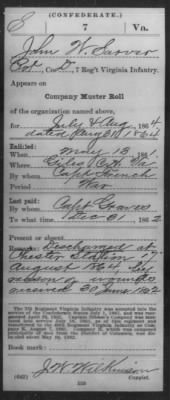 (CONFEDERATE.)
S 7 Va.
John W. Sarver
Pvt, Co. D, 7 Reg't Virginia Infantry.
Appears on
Company Muster Roll
of the organization named above,
for July & Aug, 1864
dated Aug 31 1864
Enlisted:
When May 13, 1861
Where Giles C.H. Va
By whom Capt French
Period War
Last paid:
By whom Capt Graves
To what time Dec 31, 1862
Present or absent
Remarks: Discharged at
Chester Station 17
August 1864 by
reason of wounds
received 30 June 1862
Book mark:
J. W. Wilkinson
(642) Copyist.